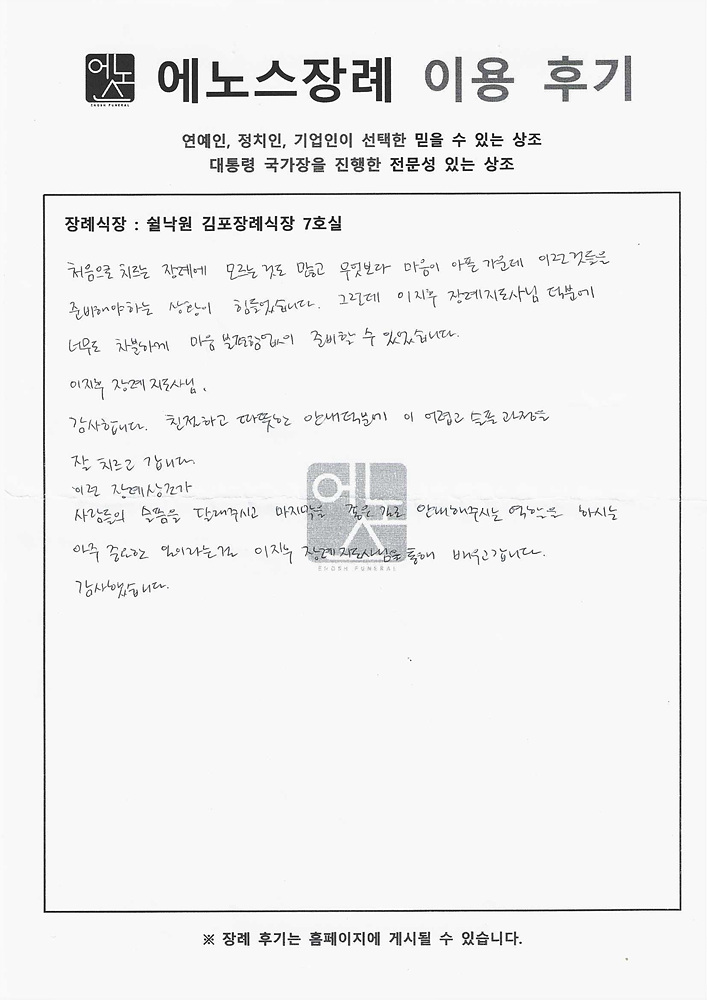 에노스
ENOSH FUNERAL
에노스장례 이용 후기
연예인, 정치인, 기업인이 선택한 믿을 수 있는 상조
대통령 국가장을 진행한 전문성 있는 상조
장례식장 : 쉴낙원 김포장례식장 7호실
처음으로 치르는 장례에 모르는것도 많고 무엇보다 마음이 아픈 가운데 이런것들을
준비해야하는 상황이 힘들었습니다. 그런데 이지후 장례지도사님 덕분에
너무도 차분하게 마음 불편함없이 준비할 수 있었습니다.
이지후 장례지도사님,
감사합니다. 친절하고 따뜻한 안내덕분에 이 어렵고 슬픈 과정을
잘 치르고 갑니다.
이런 장례상조가
사람들의 슬픔을 달래주시고 마지막을 좋은 길로 안내해주시는 역할을 하시는
아주 중요한 일이라는걸 이지후 장례지도사님을 통해 배우고갑니다.
에노스
ENOSH FUNERAL
감사했습니다.
※ 장례 후기는 홈페이지에 게시될 수 있습니다.